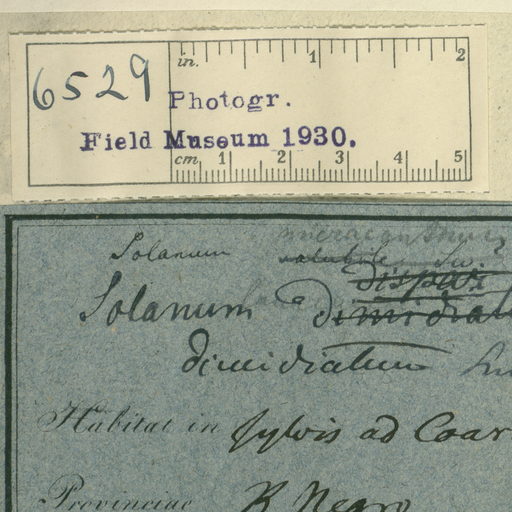 6529
in. 1 2
Photogr.
Field Museum 1930.
cm 1 2 3 4 5
Solanum
Solanum
dimidiatum
Habitat in sylvis ad Coar
Provinciae R. Negro